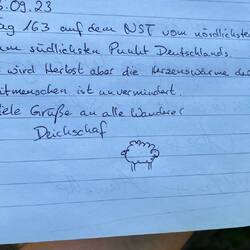 .09.23
ag 163 auf dem NST vom nördlichste
um südlichsten Punkt Deutschlands
wird Herbst aber die Herzenswärme de
itmenschen ist unvermindert.
iele Grüße an alle Wanderer
Deichschaf